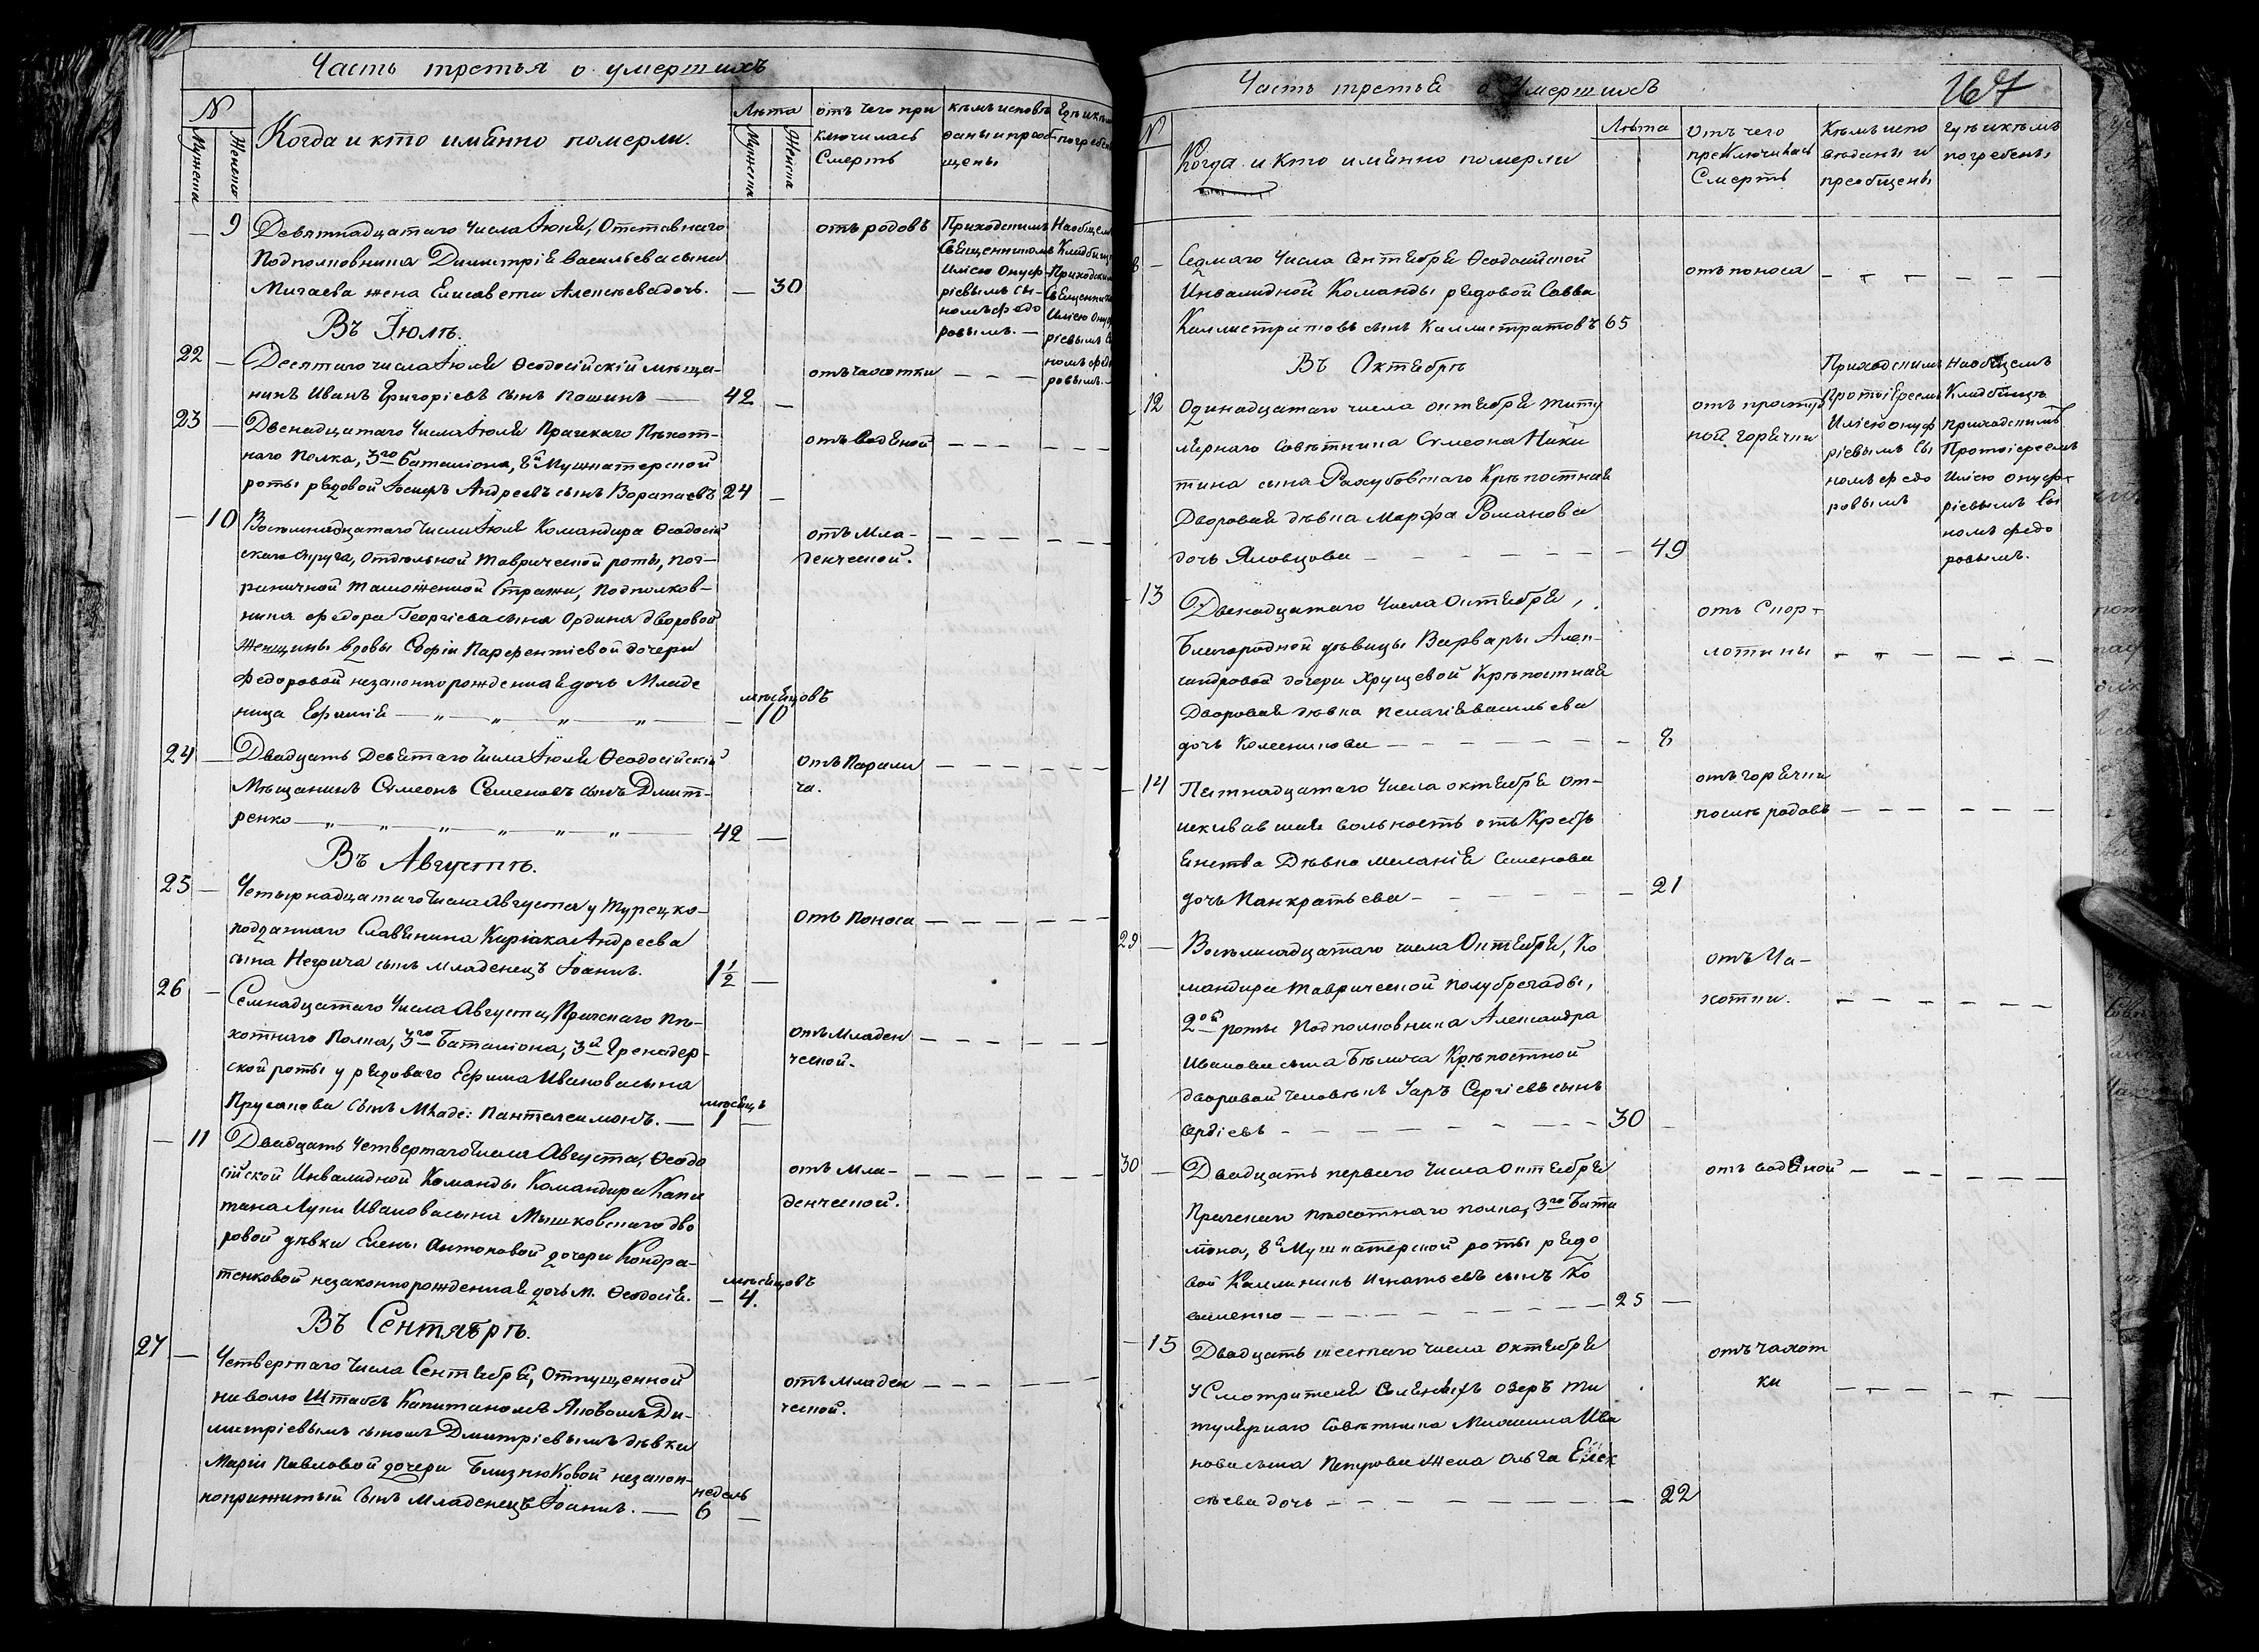 Часть третья о умершихъ
№
Мужеска
Женска
Когда и кто имянно померли.
Лѣта
Мужеска
Женска
отъ чего при
ключилась
Смерть
кѣмъ исповѣ
даны и приоб
щены
9 Девятнадцатаго числа Іюня, Отставнаго
Подполковника Димитрія Васильева сына
жена Елисавета Алексѣева дочь. — 30
отъ родовъ
Приходскимъ
Священникомъ
Илією Онуф-
ріевымъ сы-
номъ Федо
ровымъ. —
На общемъ
Кладбищѣ
Приходскимъ
Священникомъ
Илією Онуф
ріевымъ сы
номъ Федо
ровымъ.
Въ Іюлѣ.
22 — Десятаго числа Іюля Ѳеодосійскій мѣща-
нинъ Иванъ Григоріевъ сынъ Пашинъ — 42 —
отъ чахотки — — —
23 — Двенадцатаго числа Іюля Пражскаго Пѣхот-
наго Полка, 3го Баталіона, 8й Мушкатерской
роты рядовой Іосифъ Андреевъ сынъ Ворапаевъ 24 —
отъ водяной — — —
— 10 Восемнадцатаго числа Іюля Командира Ѳеодосій
скаго округа, отдѣльной Таврической роты, пог-
раничной таможенной Стражи, Подполков-
ника Федора Георгіева сына Ордина дворовой
женщины вдовы Софіи Парфентіевой дочери
Федоровой незаконнорожденная дочь Младе
ница Ефимія — — мѣсяцовъ 10
отъ Мла-
денческой.
24 — Двадцать девятаго числа Іюля Ѳеодосійскій
Мѣщанинъ Сумеонъ Семеновъ сынъ Дмит-
ренко — 42 —
отъ Парали
ча.
Въ Августѣ.
25 — Четырнадцатаго числа Августа у Турецко-
подданнаго Славянина Киріака Андреева
сына Негрича сынъ младенецъ Іоаннъ. 1½ —
отъ Поноса
26 — Семнадцатаго числа Августа, Пражскаго Пѣ-
хотнаго Полка, 3го Баталіона, 3й Гренадер-
ской роты у рядоваго Ефима Иванова сына
Прусакова сынъ Младе: Пантелеимонъ. — мѣсяцъ 1 —
отъ Младен
ческой.
— 11 Двадцать четвертаго числа Августа, Ѳеодо
сійской Инвалидной Команды Командира Капи
тана Луки Иванова сына Мышковскаго дво
ровой дѣвки Елены Антоновой дочери Кондра-
тенковой незаконнорожденная дочь м. Ѳеодосія. — мѣсяцовъ 4.
отъ Мла-
денческой.
Въ Сентябрѣ.
27 — Четвертаго числа Сентября, Отпущенной
на волю Штабсъ Капитаномъ Яковомъ Ди-
митріевымъ сыномъ Дмитріевымъ дѣвки
Маріи Павловой дочери Близнюковой незакон-
ноприжитый сынъ младенецъ Іоаннъ. — недель 6 —
отъ младен
ческой.
Часть третья о Умершихъ
167
№
Когда и кто имянно померли
Лѣта
Отъ чего
преключилась
Смерть
Кѣмъ испо
вѣданы и
преобщены
Гдѣ и кѣмъ
погребены
8 — Седмаго числа Сентября Ѳеодосійской
Инвалидной Команды рядовой Савва
Каллистратовъ сынъ Каллистратовъ 65
отъ поноса
Въ Октябрѣ
— 12 Одинадцатаго числа октября титу
лярнаго Совѣтника Сумеона Ники
тина сына Крѣпостная
Дворовая дѣвка Марфа Романова
дочь Яловцова — 49
отъ простуд
ной горячки
Приходскимъ
Протоіереемъ
Илією Онуф
ріевымъ сы
номъ Федо
ровымъ
На общемъ
Кладбищѣ
приходскимъ
Протоіереемъ
Илією Онуф-
ріевымъ сы
номъ Федо
ровымъ.
— 13 Двенадцатаго числа Октября,
Благородной дѣвицы Варвары Алек-
сандровой дочери Хрущевой Крѣпостная
Дворовая дѣвка Пелагія Васильева
дочь Колесникова — 8
отъ Скор-
лотины
— 14 Пятнадцатаго числа октября от-
искивавшая вольность отъ Кресть
янства Дѣвка Меланія Семенова
дочь Панкратьева — 21
отъ горячки
послѣ родовъ
29 — Восемнадцатаго числа Октября, Ко
мандира Таврической полубрегады,
2ой роты Подполковника Александра
Иванова сына Бѣлича Крѣпостной
дворовой человѣкъ Уаръ Сергіевъ сынъ
30 —
отъ Ча-
хотки.
30 — Двадцать перваго числа октября
Пражскаго пѣхотнаго полка, 3го Бата
ліона, 8й Мушкатерской роты рядо
вой Каллиникъ Игнатьевъ сынъ Ко
валенко — 25 —
отъ водяной
— 15 Двадцать шестаго числа октября
У Смотрителя Соляныхъ озеръ ти
тулярнаго Совѣтника Михаила Ива
нова сына Петрова жена Ольга Елек
сѣева дочь — 22
отъ чахот
ки